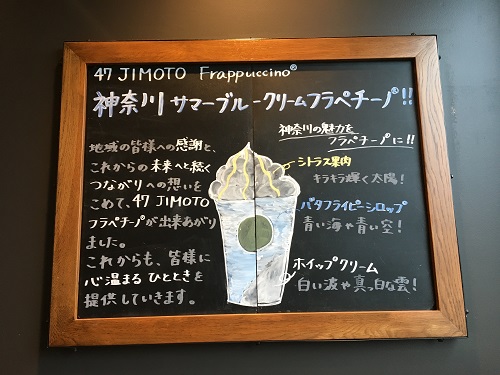 47 JIMOTO Frappuccino®
神奈川 サマーブルークリームフラペチーノ®!!
地域の皆様への感謝と、
これからの未来へと続く
つながりへの想いを
こめて、47 JIMOTO
フラペチーノが出来あがり
ました。
これからも、皆様に
心温まるひとときを
提供していきます。
神奈川の魅力を
フラペチーノに!!
シトラス果肉
キラキラ輝く太陽!
バタフライピーシロップ
青い海や青い空!
ホイップクリーム
白い波や真っ白な雲!